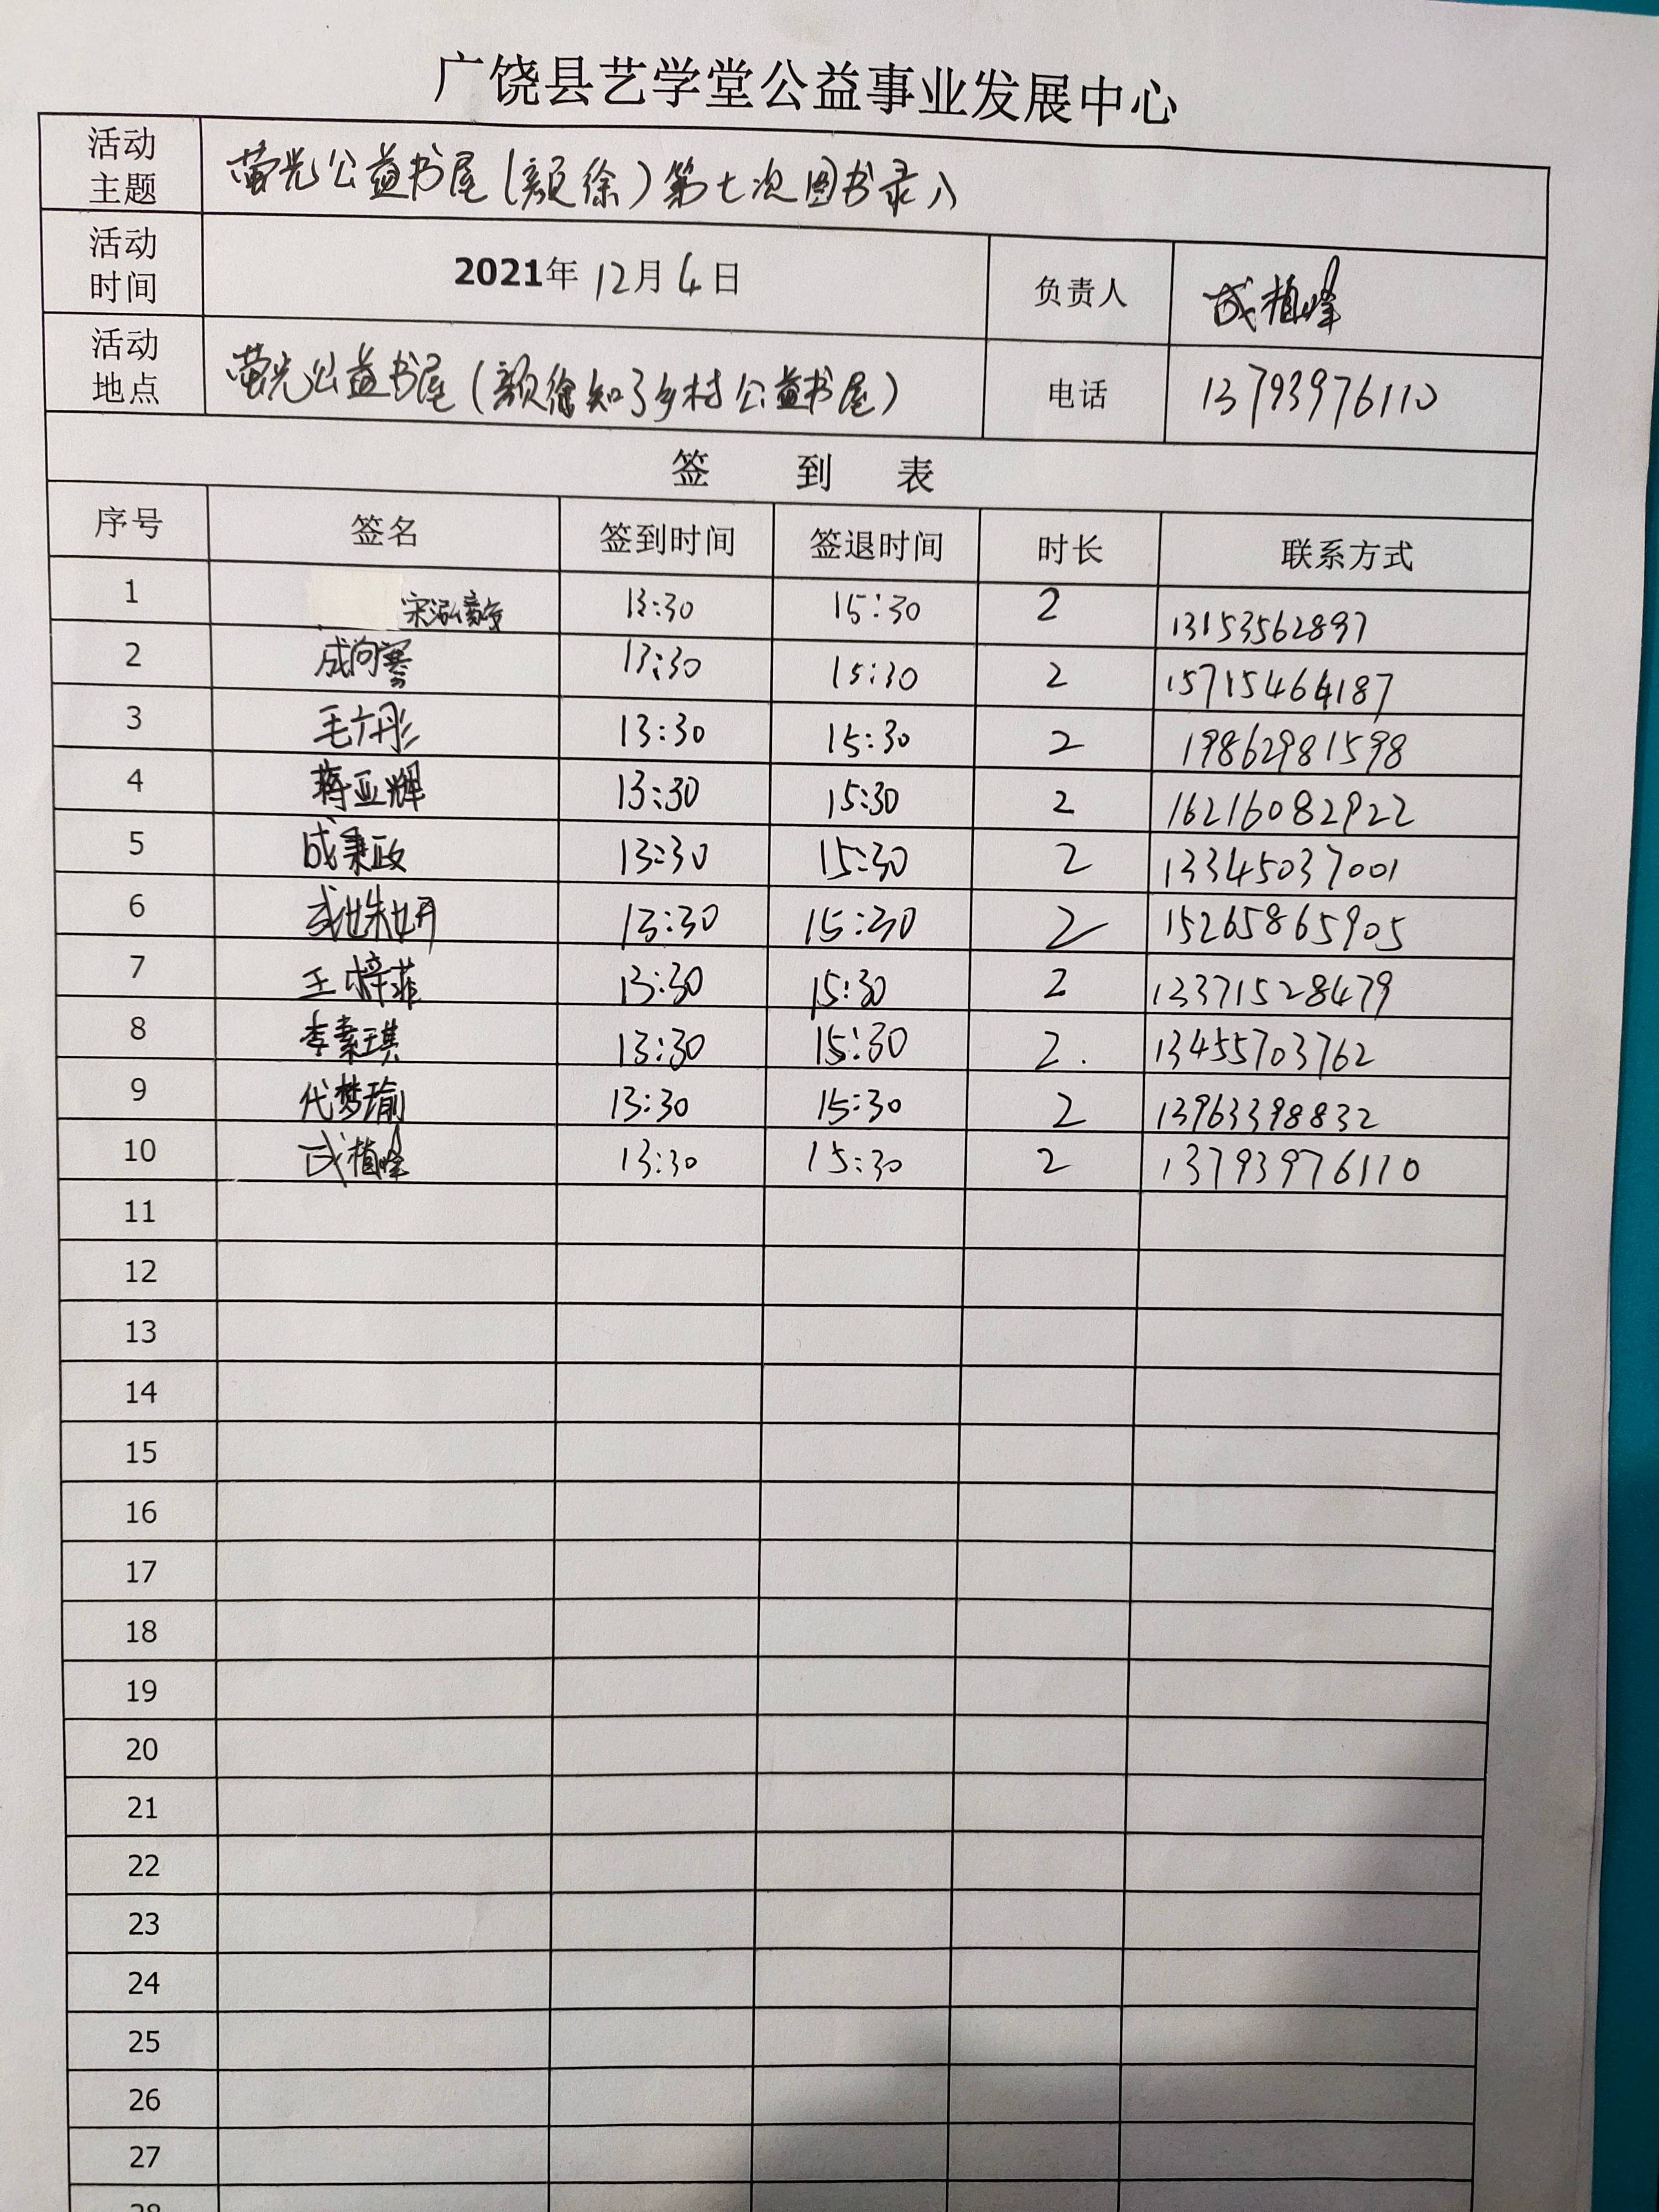 广饶县艺学堂公益事业发展中心
活动主题 萤光公益书屋(颜徐)第七次图书录入
活动时间 2021年12月4日 负责人 成植峰
活动地点 萤光公益书屋(颜徐知了乡村公益书屋) 电话 13793976110
签 到 表
序号 签名 签到时间 签退时间 时长 联系方式
1 宋泓 13:30 15:30 2 13153562897
2 成向 13:30 15:30 2 15715464187
3 毛六彤 13:30 15:30 2 19862981598
4 蒋亚辉 13:30 15:30 2 16216082922
5 成秉政 13:30 15:30 2 13345037001
6 13:30 15:30 2 15265865905
7 王梓菲 13:30 15:30 2 13371528479
8 李素琪 13:30 15:30 2. 13455703762
9 代梦瑜 13:30 15:30 2 13963398832
10 成植峰 13:30 15:30 2 13793976110
11
12
13
14
15
16
17
18
19
20
21
22
23
24
25
26
27
28